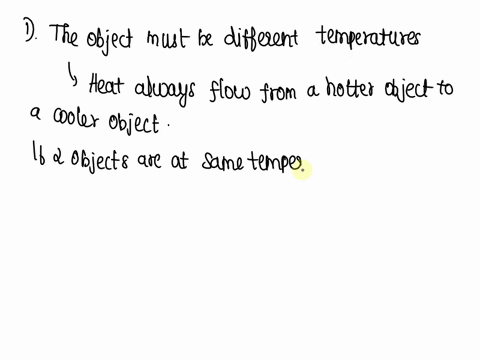 1). The object must be different temperatures
↳ Heat always flow from a hotter object to
a cooler object.
If 2 objects are at same temper